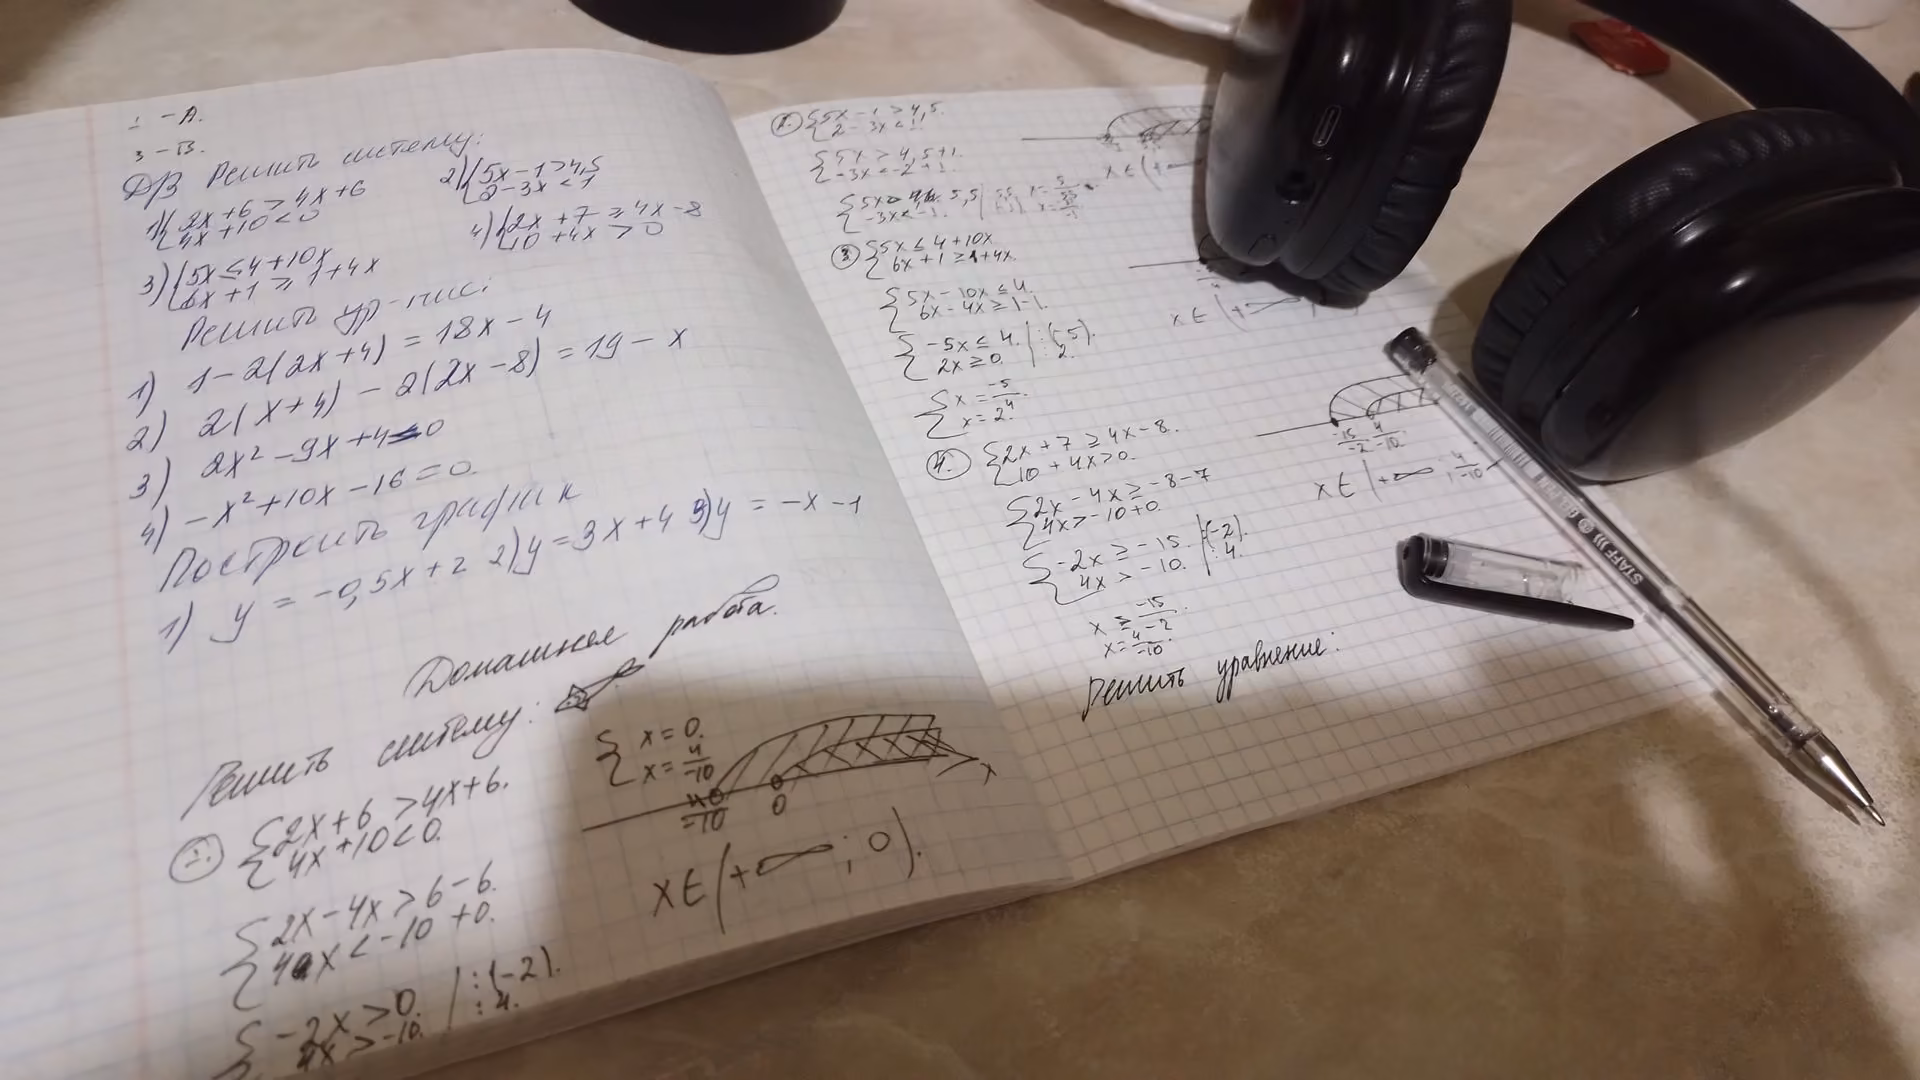 1 - А.
3 - В.
ДЗ Решить систему:
1) { 2x + 6 > 4x + 6
4x + 10 < 0
2) { 5x - 1 > 4,5
2 - 3x < 1
3) { 5x ≤ 4 + 10x
6x + 1 ≥ 1 + 4x
4) { 2x + 7 ≥ 4x - 8
10 + 4x > 0
Решить ур-ние:
1) 1 - 2(2x + 4) = 18x - 4
2) 2(x + 4) - 2(2x - 8) = 19 - x
3) 2x² - 9x + 4 = 0
4) -x² + 10x - 16 = 0.
Построить график
1) y = -0,5x + 2 2) y = 3x + 4 3) y = -x - 1
Домашняя работа.
Решить систему:
1. { 2x + 6 > 4x + 6.
4x + 10 < 0.
{ 2x - 4x > 6 - 6.
4x < -10 + 0.
{ -2x > 0. | : (-2).
4x > -10. | : 4.
{ x = 0.
x = 4/-10
-10 0 x
x ∈ (+∞; 0).
2. { 5x - 1 > 4,5.
2 - 3x < 1.
{ 5x > 4,5 + 1.
-3x < -2 + 1.
{ 5x > 5,5
-3x < -1.
x ∈ (+∞
3. { 5x ≤ 4 + 10x
6x + 1 ≥ 1 + 4x.
{ 5x - 10x ≤ 4.
6x - 4x ≥ 1 - 1.
{ -5x ≤ 4. | : (-5).
2x ≥ 0. | : 2.
{ x = -5/4.
x = 2.
x ∈ (+∞
4. { 2x + 7 ≥ 4x - 8.
10 + 4x > 0.
{ 2x - 4x ≥ -8 - 7
4x > -10 + 0.
{ -2x ≥ -15. | : (-2).
4x > -10. | : 4.
x ≥ -15/-2.
x = 4/-10.
-15/-2 4/-10
x ∈ (+∞ 4/-10
Решить уравнение:
STAFF